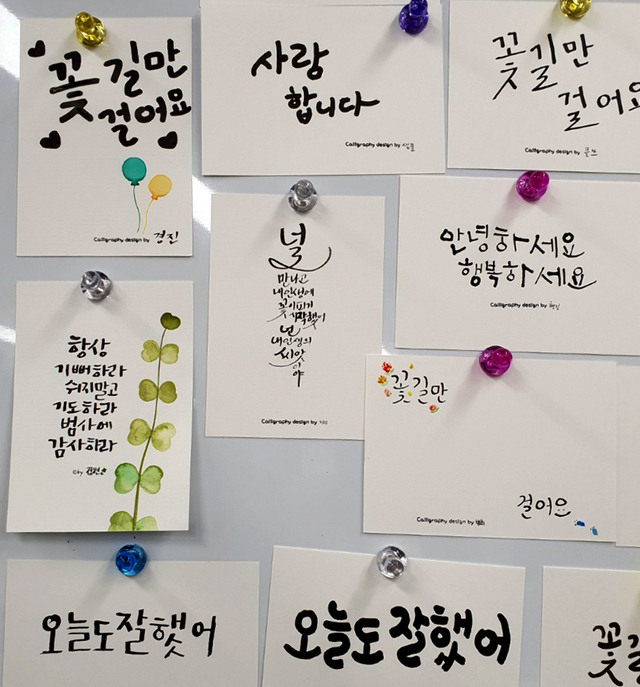 꽃길만
걸어요
Calligraphy design by 경진
사랑
합니다
Calligraphy design by
꽃길만
걸어요
Calligraphy design by
널
만나고
내인생에
꽃이피기
시작했어
넌
내인생의
씨앗
이야
Calligraphy design by
안녕하세요
행복하세요
Calligraphy design by
항상
기뻐하라
쉬지말고
기도하라
범사에
감사하라
©by
꽃길만
걸어요
Calligraphy design by
오늘도잘했어
오늘도잘했어